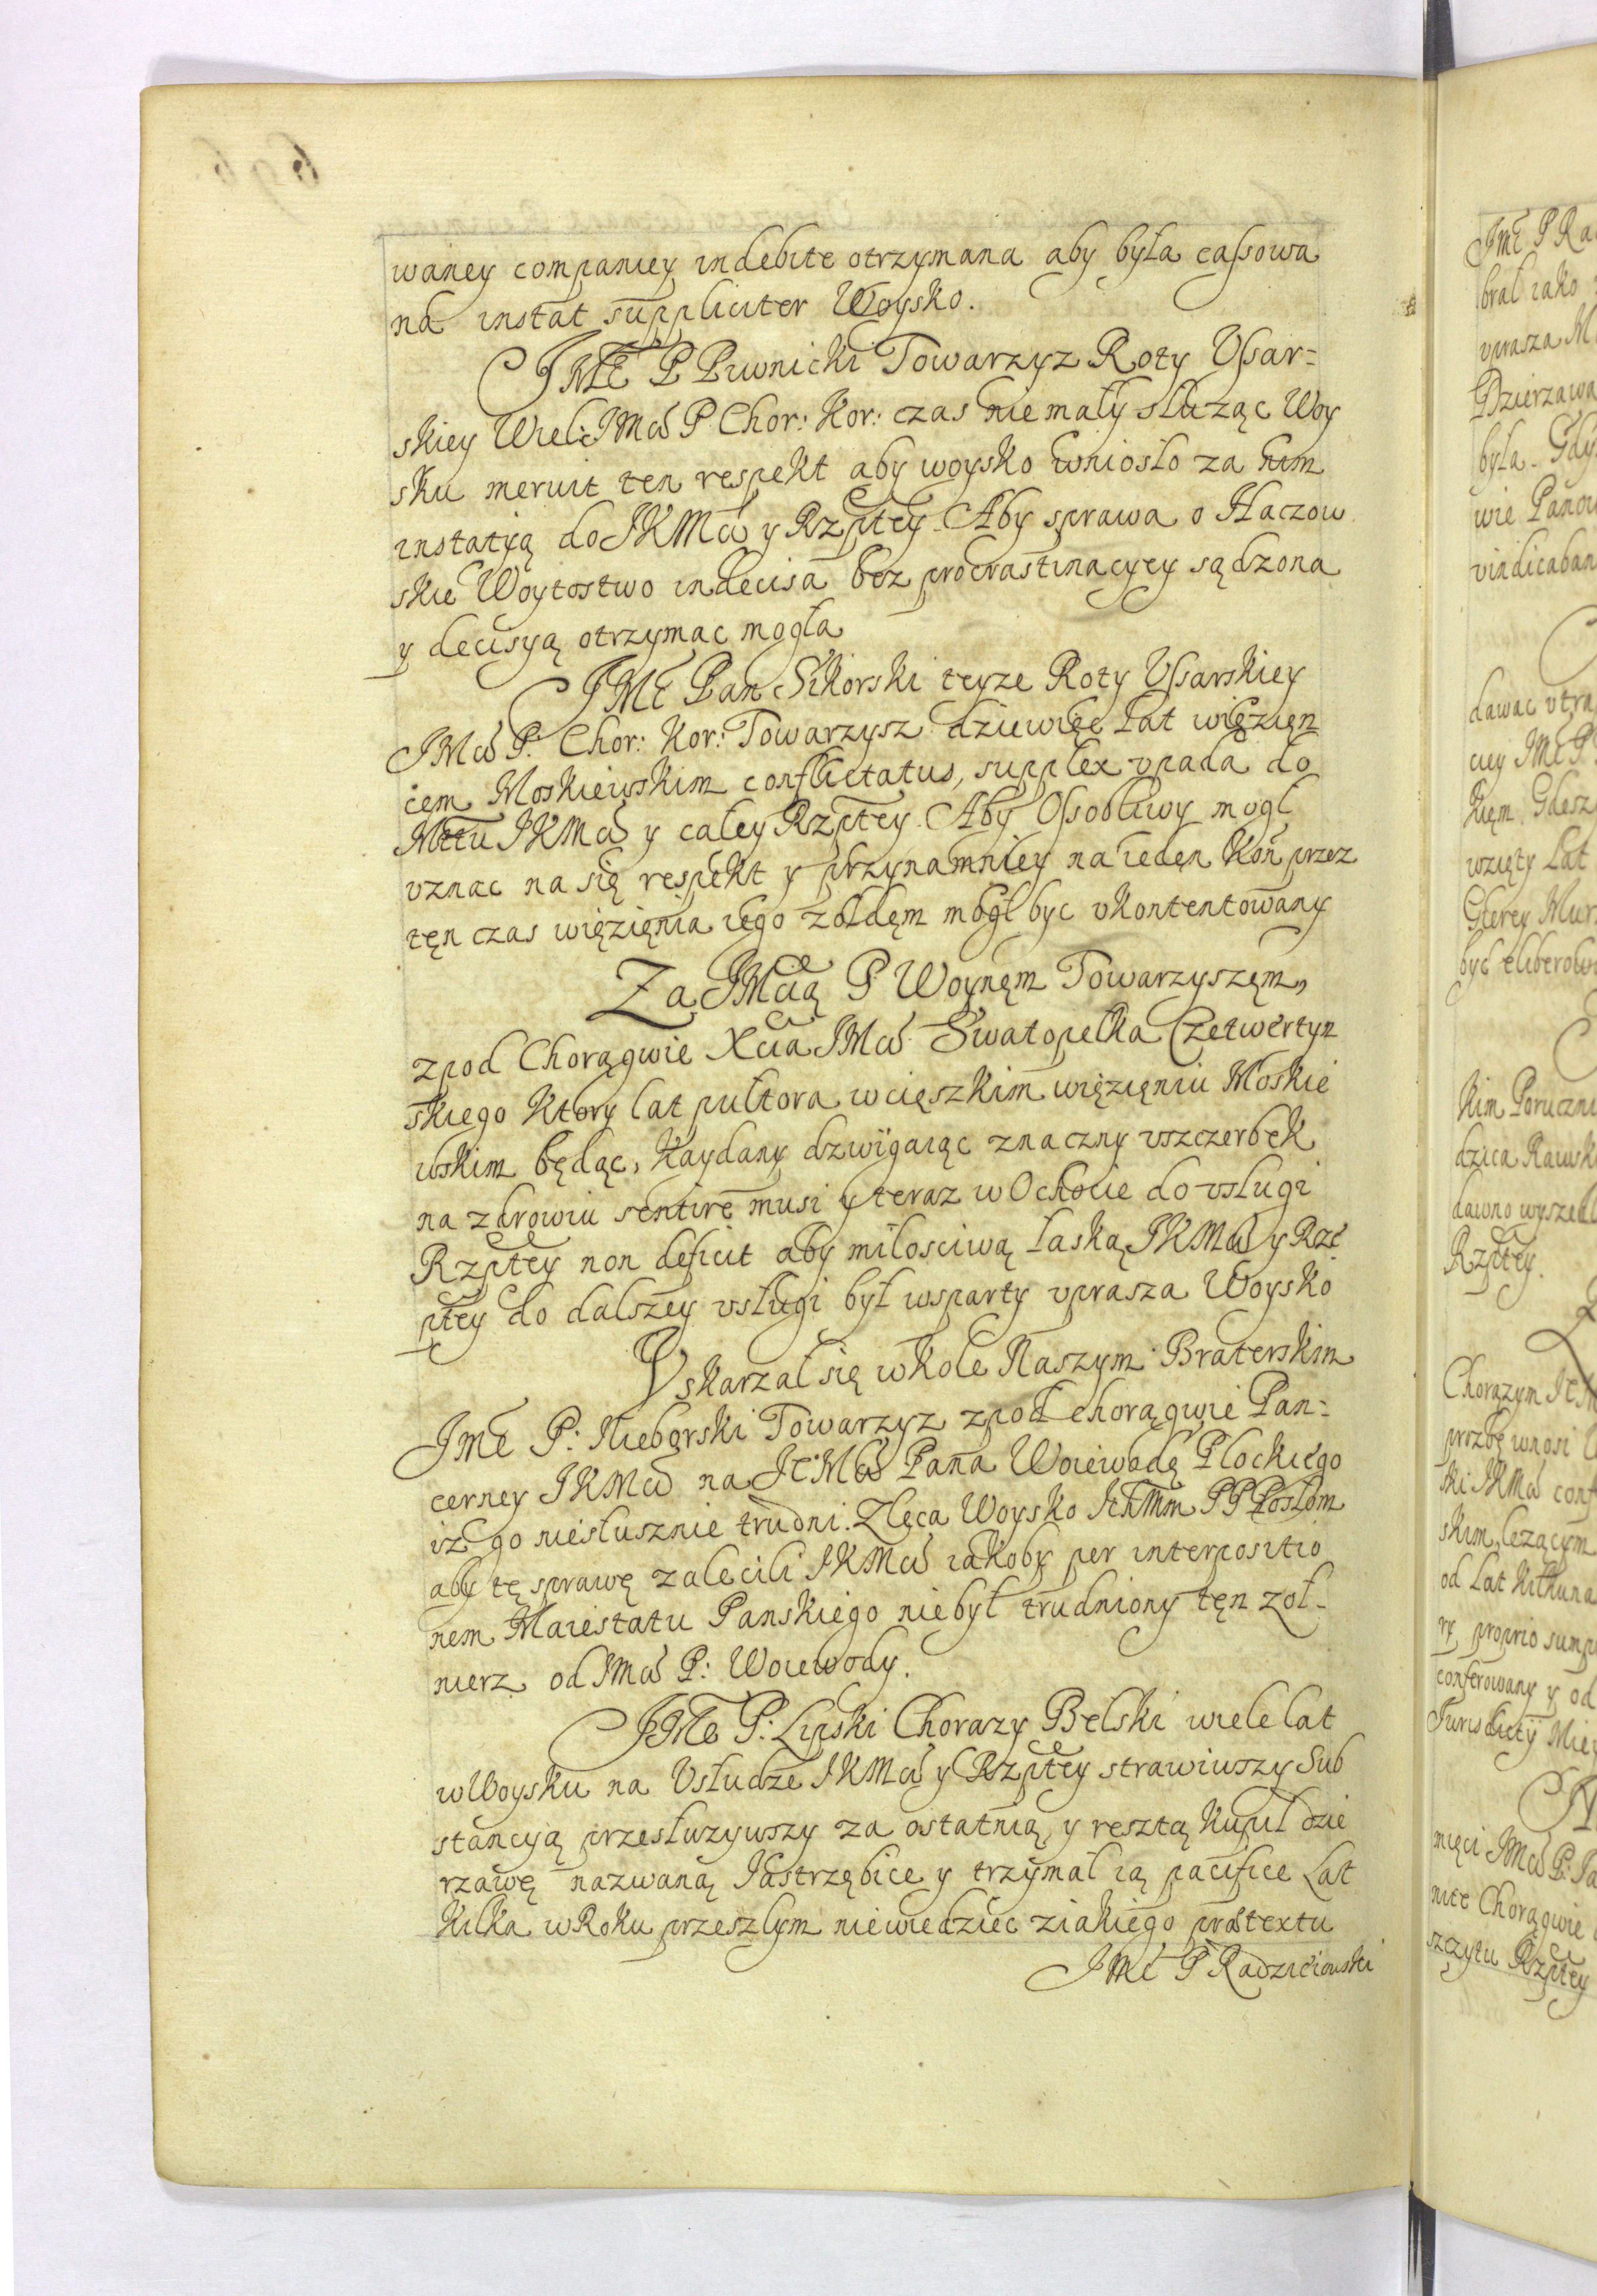 waney companiey indebite otrzymana aby była cassowa
na instat suppliciter Woysko.
JMć P Piwnicki Towarzyz Roty Vsar=
skiey Wiel: JMci P Chor: Kor: czas niemały służąc Woy
sku meruit ten respekt aby woysko wniosło za nim
instatyą do JKMci y Rzptey. Aby sprawa o Haczow
skie Woytostwo indecisa bez procrastinacyey sądzona
y decisyą otrzymac mogła
JMć Pan Sikorski teyze Roty Vsarskiey
JMci P: Chor: Kor: Towarzysz dziewięc Lat więzięn
iem Moskiewskim conflictatus, supplex vpada do
Mttu JKMci y całey Rzptey. Aby Ossobliwy mogł
vznac na się respekt y przynamniey na ieden Koń przez
tęn czas więzięnia iego zołdęm mogł byc vkontentowany
Za JMcią P Woynęm Towarzyszęm,
zpod Chorągwie Xcia JMci Swatopełka Czetwertyn
skiego Ktory lat pułtora wcięszkim więzięniu Moskie
wskim będąc, Kaydany dzwigaiąc znaczny vszczerbek
na zdrowiu sentire musi y teraz w Ochocie do vsługi
Rzptey non deficit aby miłosciwą łaską JKMci y Rze
ptey do dalszey vsługi był wsparty vprasza Woysko
Vskarzał się wkole Naszym Braterskim
Jmć P: Nieborski Towarzyz zpod chorągwie Pan=
cerney JKMci na JeMci Pana Woiewodę Płockiego
iz go niesłusznie trudni. Zleca Woysko Ichmm PP Posłom
aby tę sprawę zalecili JKMci iakoby per interpositio
nem Maiestatu Panskiego niebył trudniony tęn zoł-
nierz od JMci P: Woiewody.
JMć P: Lipski Chorazy Bełski wiele lat
wWoysku na Vsłudze JKMci y Rzptey strawiwszy Sub
stancyą przesłuzywszy za ostatnią y resztą Kupił dzie
rzawę nazwaną Jastrzębice y trzymał ią pacifice Lat
Kilka wRoku przeszłym niewiedziec ziakiego praetextu
JMć P Radzieiowski